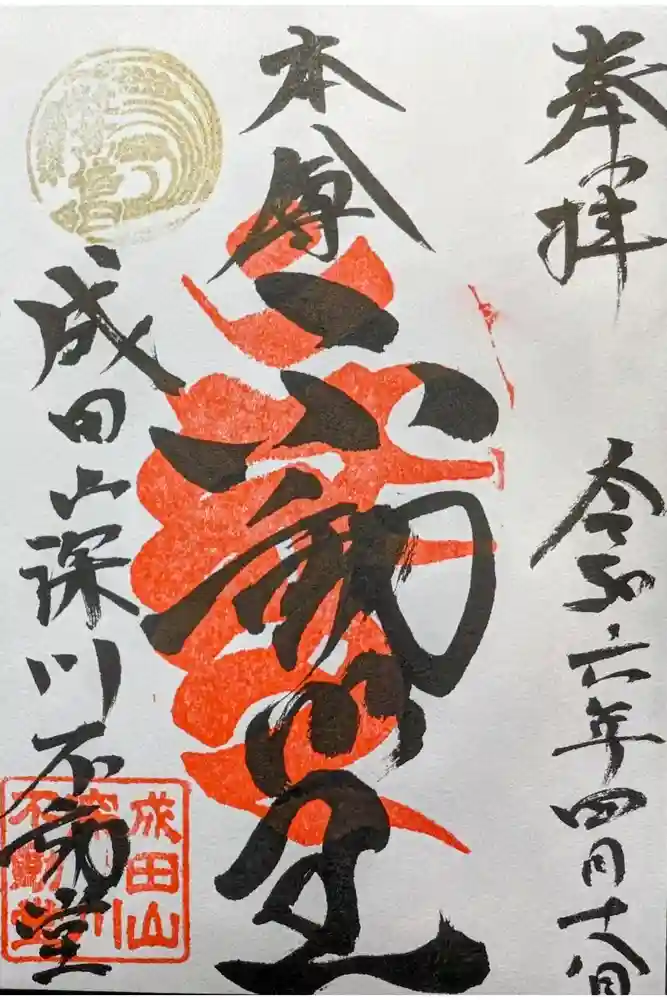 奉拝
令和六年四月十八日
本尊
不動尊
成田山深川不動堂
成田山
深川
不動堂